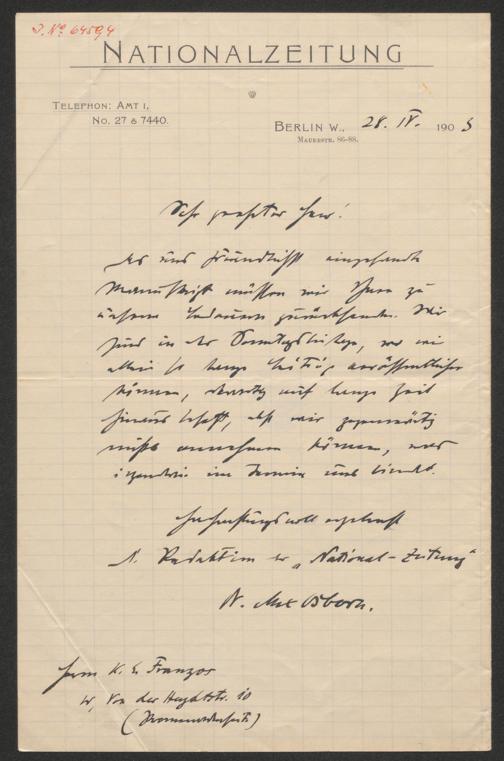 J. No 64594
NATIONALZEITUNG
TELEPHON: AMT I,
No. 27 & 7440.
BERLIN W., 28. IV. 1903
MAUERSTR. 86-88.
Sehr geehrter Herr!
Das uns freundlichst eingesandte
Manuskript müssen wir Ihnen zu
unserm Bedauern zurücksenden. Wir
sind in der Sonntagsbeilage, wo wir
allein so lange veröffentlichen
können, derartig auf lange Zeit
hinaus besetzt, daß wir gegenwärtig
nichts annehmen können, was
irgendwie im Termin uns bindet.
Hochachtungsvoll ergebenst
d. Redaktion der „National-Zeitung"
Dr. Max Osborn.
Herrn K. E. Franzos
W, Von der Heydtstr. 10